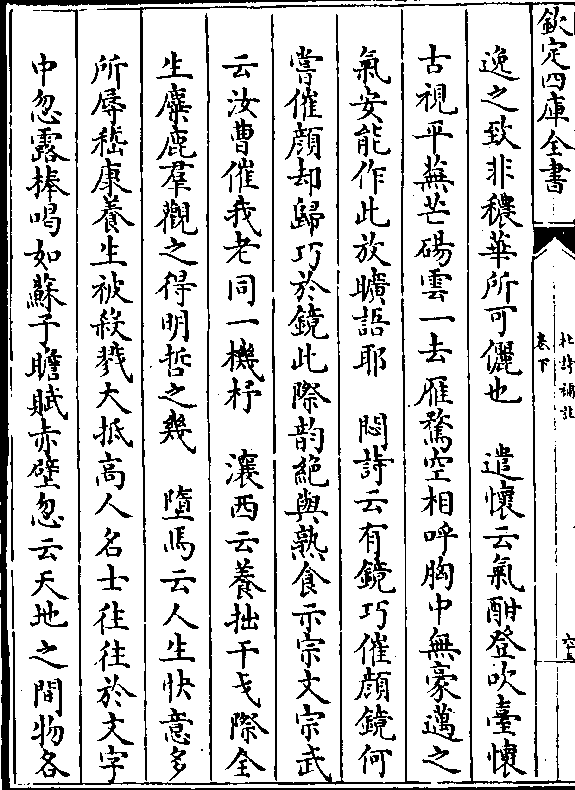 欽定四庫全書
杜詩攟
卷下
逸之致非穠華所可儷也　遣懷云氣酣登吹臺懷
古視平蕪芒碭雲一去雁鶩空相呼胸中無豪邁之
氣安能作此放曠語耶　悶詩云有鏡巧催顔鏡何
嘗催顔却歸巧於鏡此際韵絶與熟食示宗文宗武
云汝曹催我老同一機杼　瀼西云養拙干戈際全
生麋鹿羣觀之得明哲之幾　墮馬云人生快意多
所辱嵇康養生被殺戮大抵高人名士往往於文字
中忽露棒喝如蘇子瞻賦赤壁忽云天地之間物各